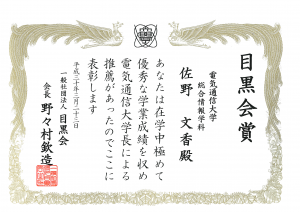 目黒会賞
電気通信大学
総合情報学科
佐野 文香殿
あなたは在学中極めて
優秀な学業成績を収め
電気通信大学長による
推薦があったのでここに
表彰します
平成二十年三月二十三日
一般社団法人 目黒会
会長 野々村欽造